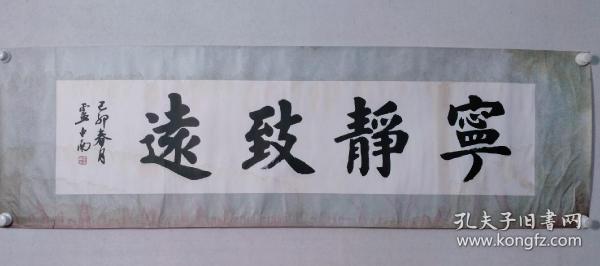 寧靜致遠
己卯春月
孔夫子旧書网
www.kongfz.com